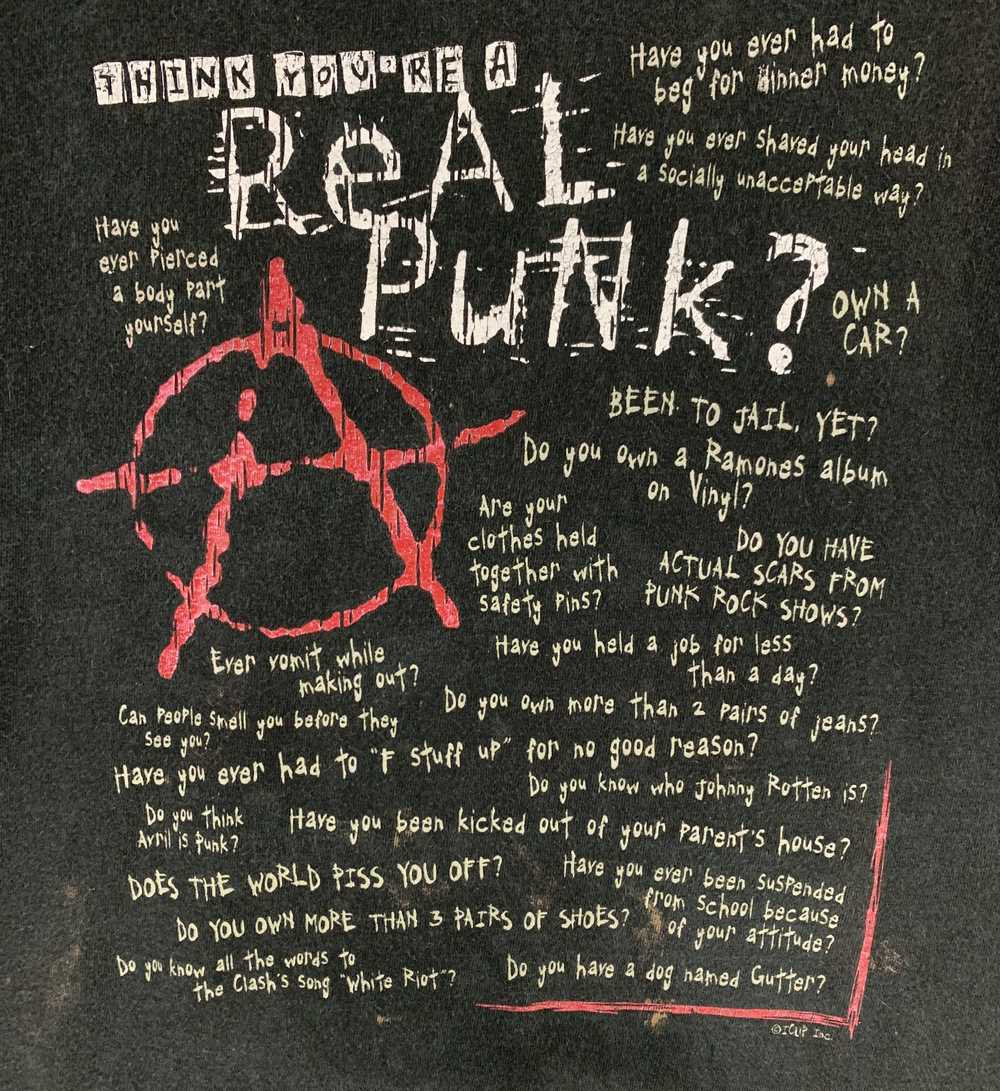 THINK YOU'RE A
ReAL
PUNK?
Have you ever had to
beg for dinner money?
Have you ever Shaved your head in
a Socially unacceptable way?
Have you
ever Pierced
a body part
yourself?
OWN A
CAR?
BEEN TO JAIL, YET?
Do you own a Ramones album
on Vinyl?
Are your
clothes held
together with
safety Pins?
DO YOU HAVE
ACTUAL SCARS FROM
PUNK ROCK SHOWS?
Have you held a job for less
than a day?
Ever vomit while
making out?
Do you own more than 2 Pairs of jeans?
Can People Smell you before they
See you?
Have you ever had to "F stuff up" for no good reason?
Do you know who Johnny Rotten is?
Do you think
Avril is Punk?
Have you been kicked out of your Parent's house?
DOES THE WORLD PISS YOU OFF?
Have you ever been Suspended
from School because
of your attitude?
DO YOU OWN MORE THAN 3 PAIRS OF SHOES?
Do you know all the words to
the Clash's Song "White Riot"?
Do you have a dog named Gutter?
©ICUP Inc.